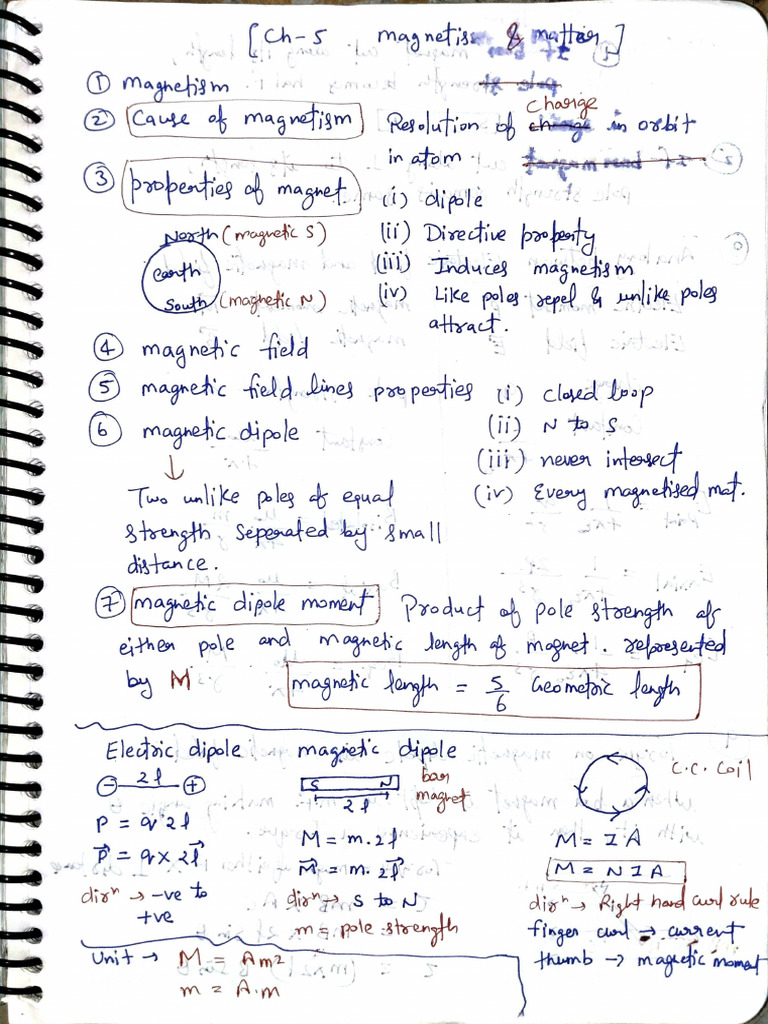 [Ch-5 magnetism & matter]
① magnetism
② Cause of magnetism Resolution of charge in orbit
in atom
③ properties of magnet (i) dipole
North (magnetic S) (ii) Directive property
earth (iii) Induces magnetism
South (magnetic N) (iv) Like poles repel & unlike poles
attract.
④ magnetic field
⑤ magnetic field lines properties (i) closed loop
⑥ magnetic dipole (ii) N to S
(iii) never intersect
Two unlike poles of equal (iv) Every magnetised mat.
strength seperated by small
distance.
⑦ magnetic dipole moment Product of pole strength of
either pole and magnetic length of magnet. represented
by M magnetic length = 5/6 Geometric length
Electric dipole magnetic dipole
- 2l + S N bar magnet C.C. Coil
2l
P = q 2l M = m. 2l M = I A
P⃗ = q x 2l⃗ M⃗ = m. 2l⃗ M = N I A
dirⁿ → -ve to +ve dirⁿ → S to N dirⁿ → Right hand curl rule
m = pole strength finger curl → current
Unit → M = Am² thumb → magnetic moment
m = A.m